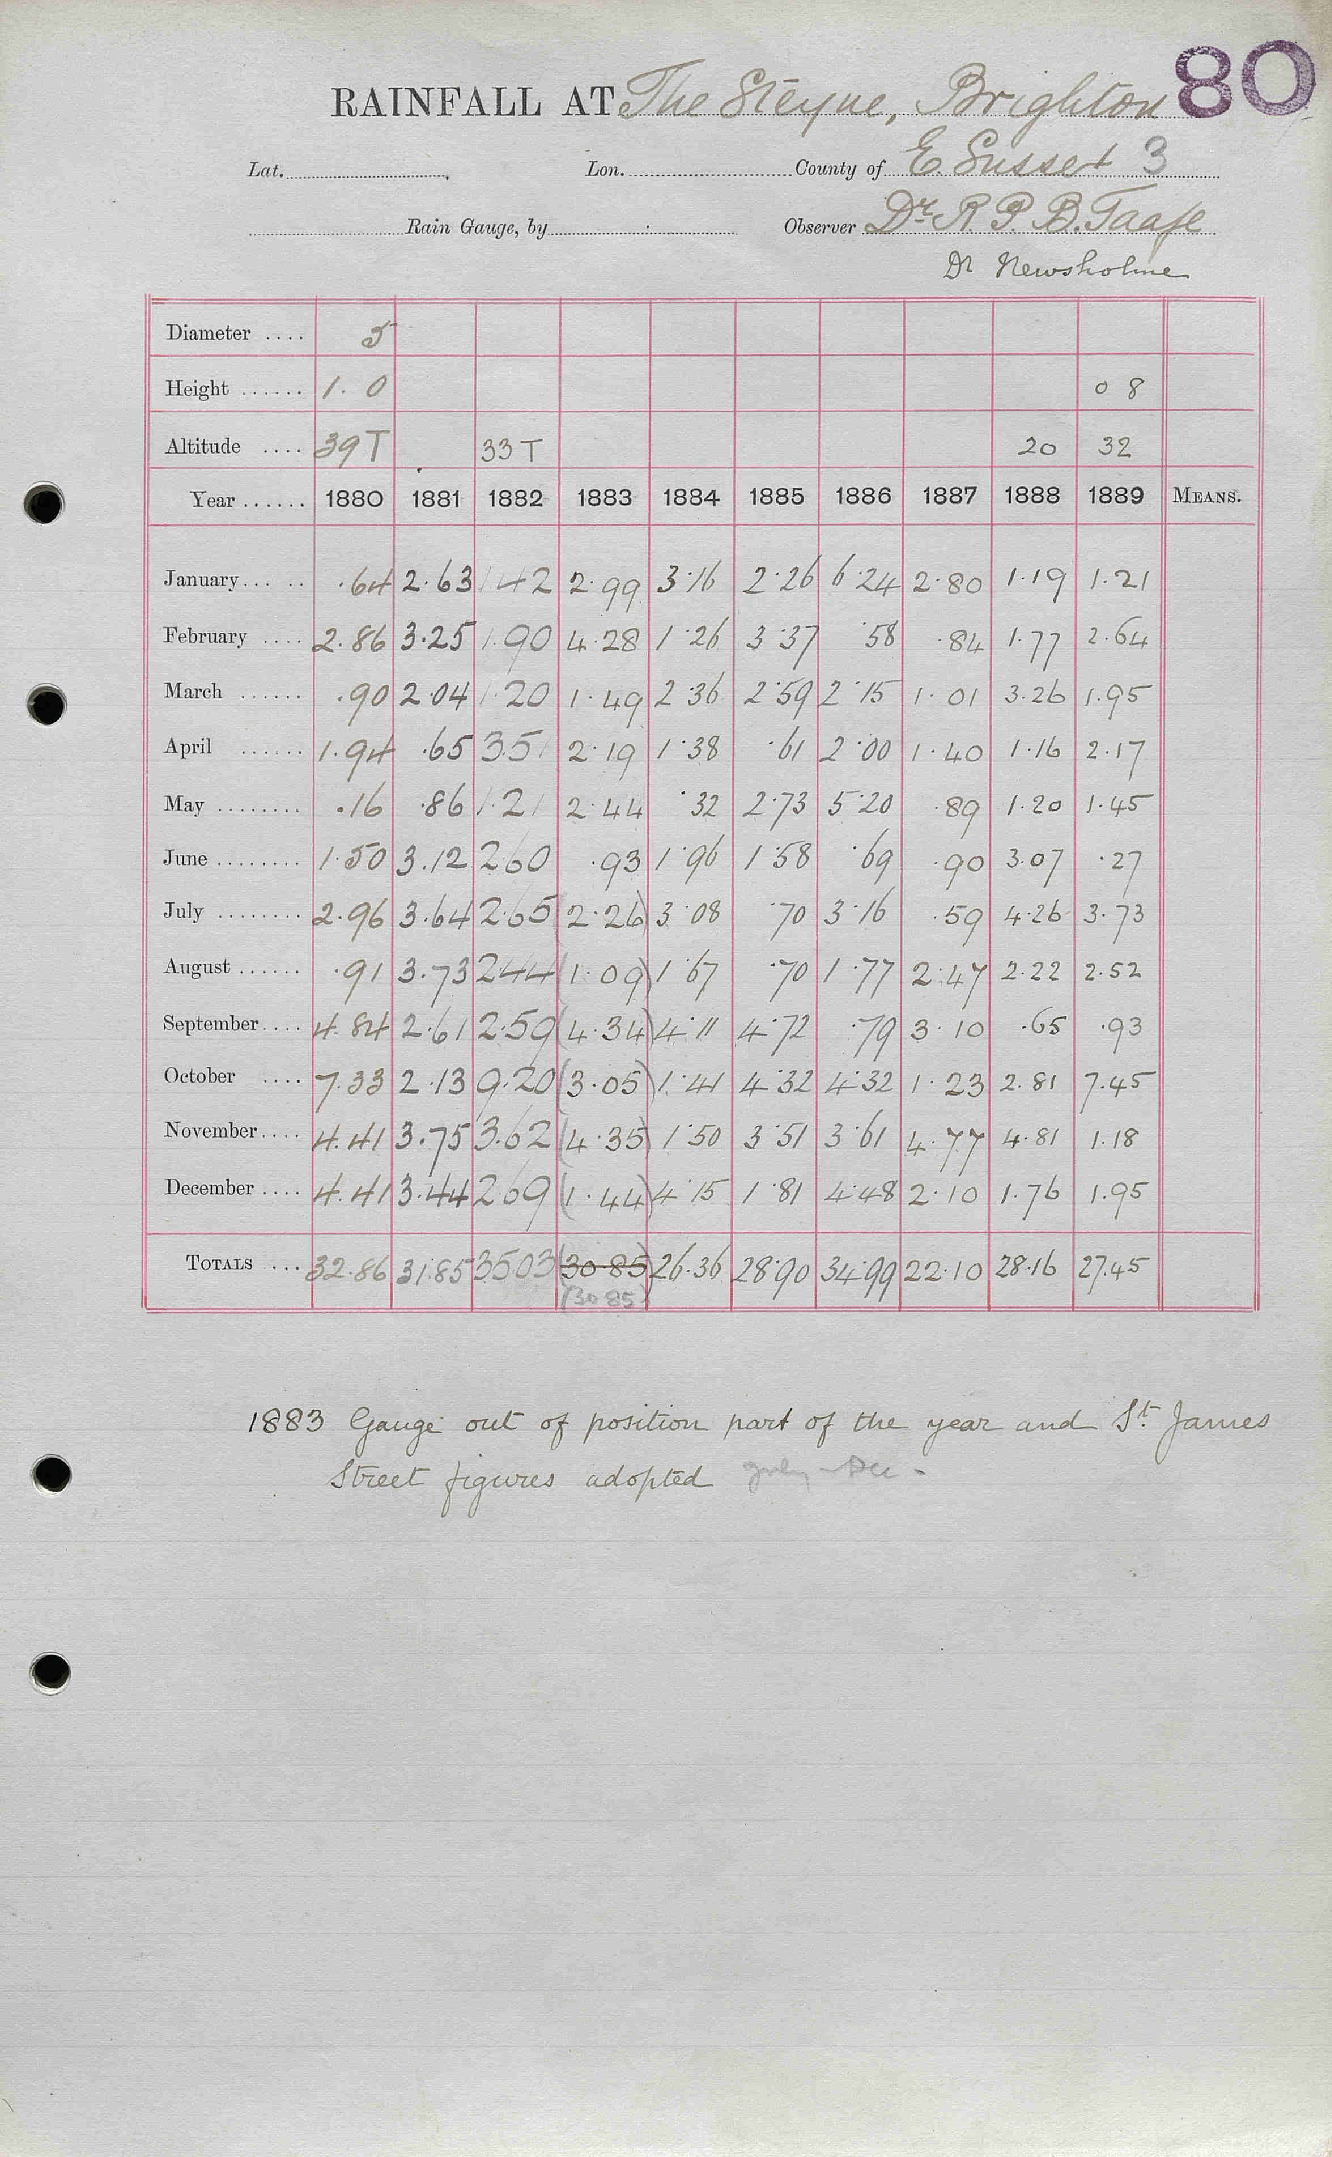 80
RAINFALL AT The Steyne, Brighton
Lat. Lon. County of E. Sussex 3
Rain Gauge, by Observer Dr R. P. B. Taafe
Dr Newsholme
Diameter .... 5
Height ...... 1. 0 0 8
Altitude .... 39T 33T 20 32
Year ...... 1880 1881 1882 1883 1884 1885 1886 1887 1888 1889 MEANS.
January... .. .64 2.63 1.42 2.99 3.16 2.26 6.24 2.80 1.19 1.21
February .... 2.86 3.25 1.90 4.28 1.26 3.37 .58 .84 1.77 2.64
March ...... .90 2.04 1.20 1.49 2.36 2.59 2.15 1.01 3.26 1.95
April ...... 1.94 .65 3.51 2.19 1.38 .61 2.00 1.40 1.16 2.17
May ........ .16 .86 1.21 2.44 .32 2.73 5.20 .89 1.20 1.45
June ........ 1.50 3.12 2.60 .93 1.96 1.58 .69 .90 3.07 .27
July ........ 2.96 3.64 2.65 (2.26) 3.08 .70 3.16 .59 4.26 3.73
August ...... .91 3.73 2.44 (1.09) 1.67 .70 1.77 2.47 2.22 2.52
September.... 4.84 2.61 2.59 (4.34) 4.11 4.72 .79 3.10 .65 .93
October .... 7.33 2.13 9.20 (3.05) 1.41 4.32 4.32 1.23 2.81 7.45
November.... 4.41 3.75 3.62 (4.35) 1.50 3.51 3.61 4.77 4.81 1.18
December .... 4.41 3.44 2.69 (1.44) 4.15 1.81 4.48 2.10 1.76 1.95
TOTALS ... 32.86 31.85 35.03 (30.85) 26.36 28.90 34.99 22.10 28.16 27.45
(30 85)
1883 Gauge out of position part of the year and St. James
Street figures adopted July - Dec -